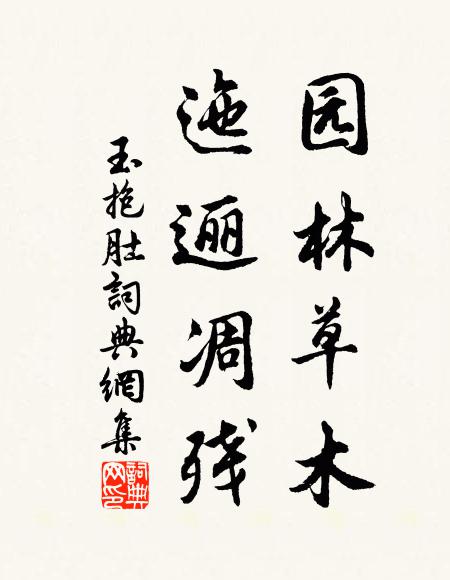 园林草木
迤逦凋残
玉抱肚詞典網集
詞典网印